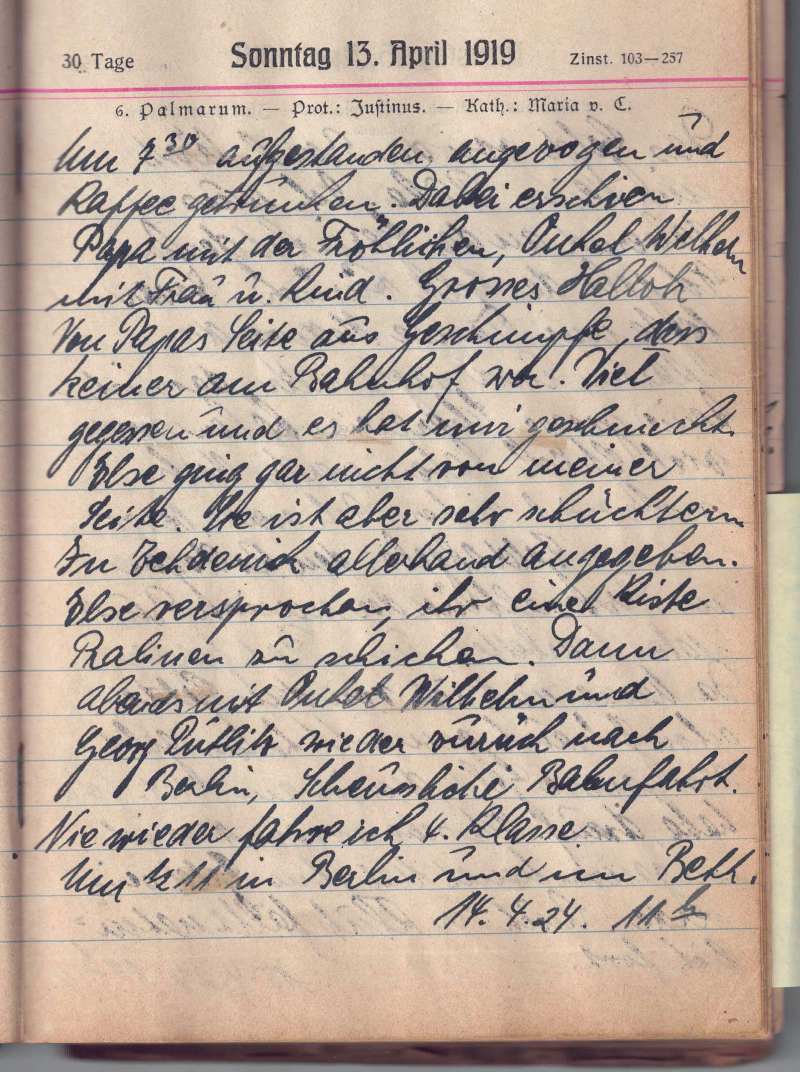 30 Tage Sonntag 13. April 1919 Zinst. 103—257
6. Palmarum. — Prot.: Justinus. — Kath.: Maria v. C.
Um 7³⁰ aufgestanden, angezogen und
Kaffee getrunken. Dabei erschien
Papa mit der Fröhlichen, Onkel Wilhelm
mit Frau u. Kind. Grosses Halloh
Von Papas Seite aus Geschimpfe, dass
keiner am Bahnhof war. Viel
gegessen und es hat mir geschmeckt.
Else ging gar nicht von meiner
Seite. Sie ist aber sehr schüchtern.
In Zehdenick allerhand angegeben.
Else versprochen, ihr eine Kiste
Pralinen zu schicken. Dann
abends mit Onkel Wilhelm und
Georg wieder zurück nach
Berlin, Scheussliche Bahnfahrt.
Nie wieder fahre ich 4. Klasse
Um ½ 11 in Berlin und im Bett.
14. 4. 24. 11 h